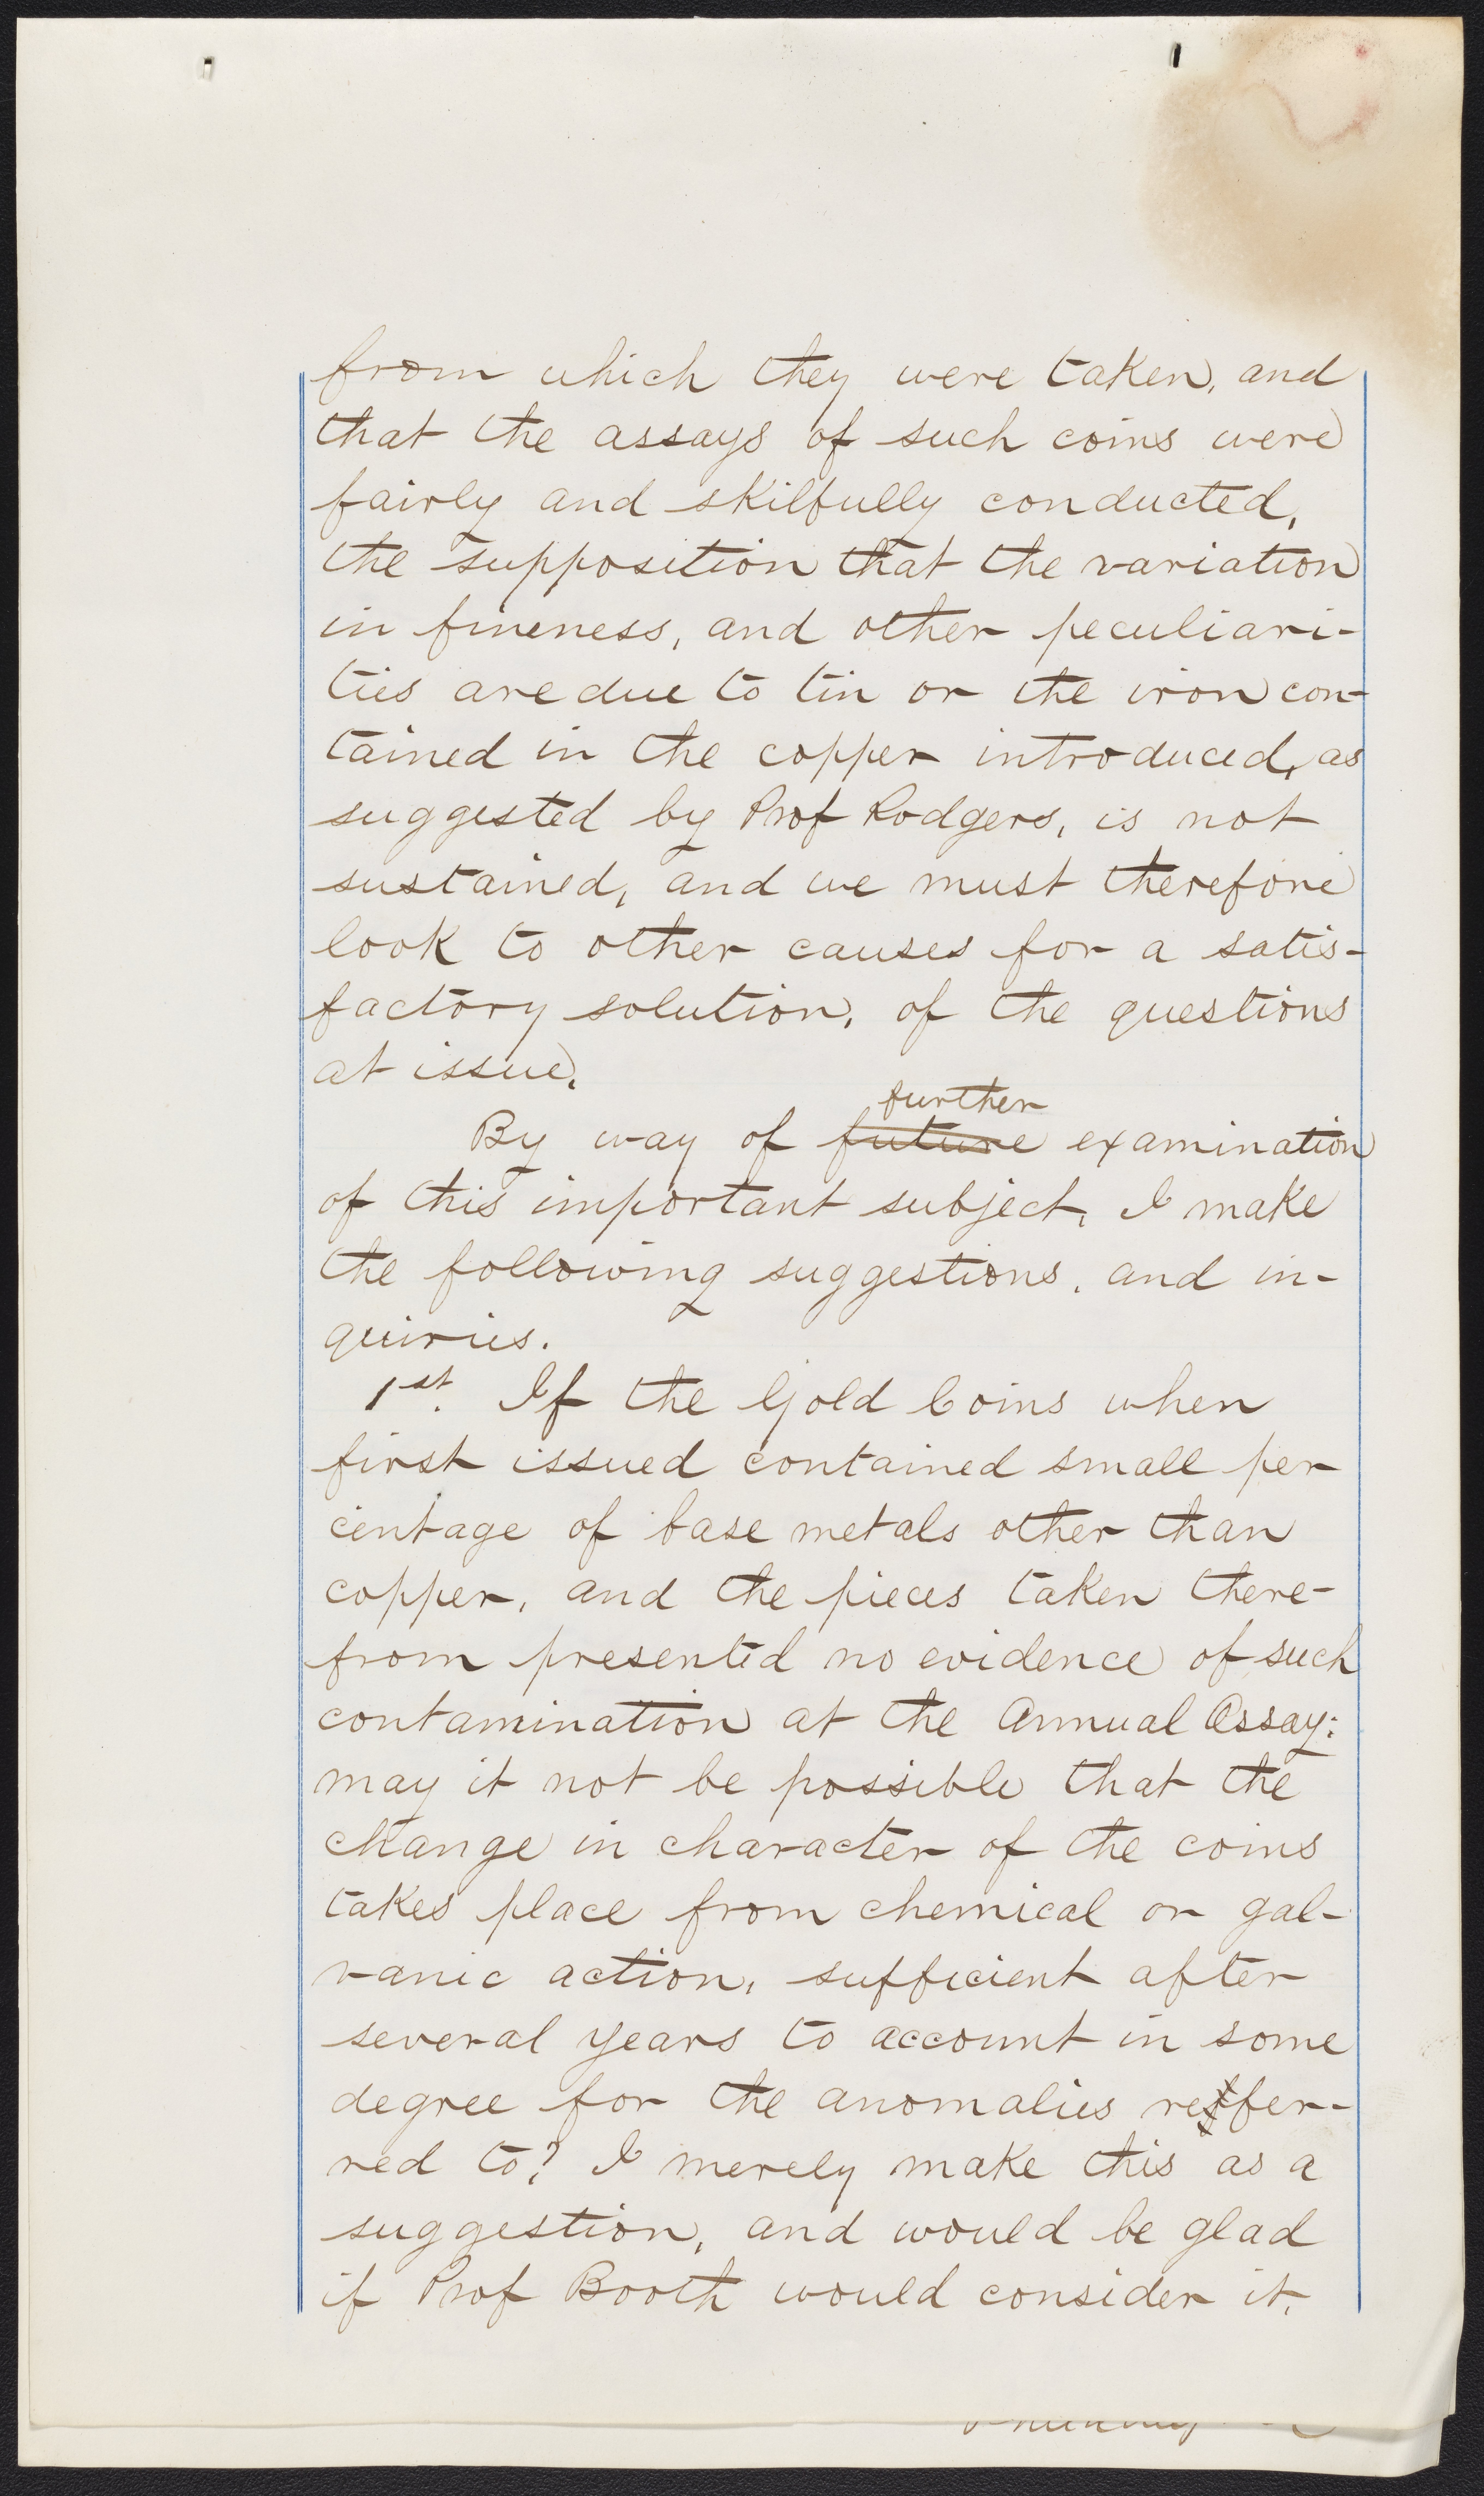 from which they were taken, and
that the assays of such coins were
fairly and skilfully conducted,
the supposition that the variation
in fineness, and other peculiari-
ties are due to tin or the iron con-
tained in the copper introduced, as
suggested by Prof Rodgers, is not
sustained, and we must therefore
look to other causes for a satis-
factory solution, of the questions
at issue.
further
By way of future examination
of this important subject, I make
the following suggestions, and in-
quiries.
1st. If the Gold Coins when
first issued contained small per
centage of base metals other than
copper, and the pieces taken there-
from presented no evidence of such
contamination at the Annual Assay;
may it not be possible that the
change in character of the coins
takes place from chemical or gal-
vanic action, sufficient after
several years to account in some
degree for the anomalies refer-
red to? I merely make this as a
suggestion, and would be glad
if Prof Booth would consider it.